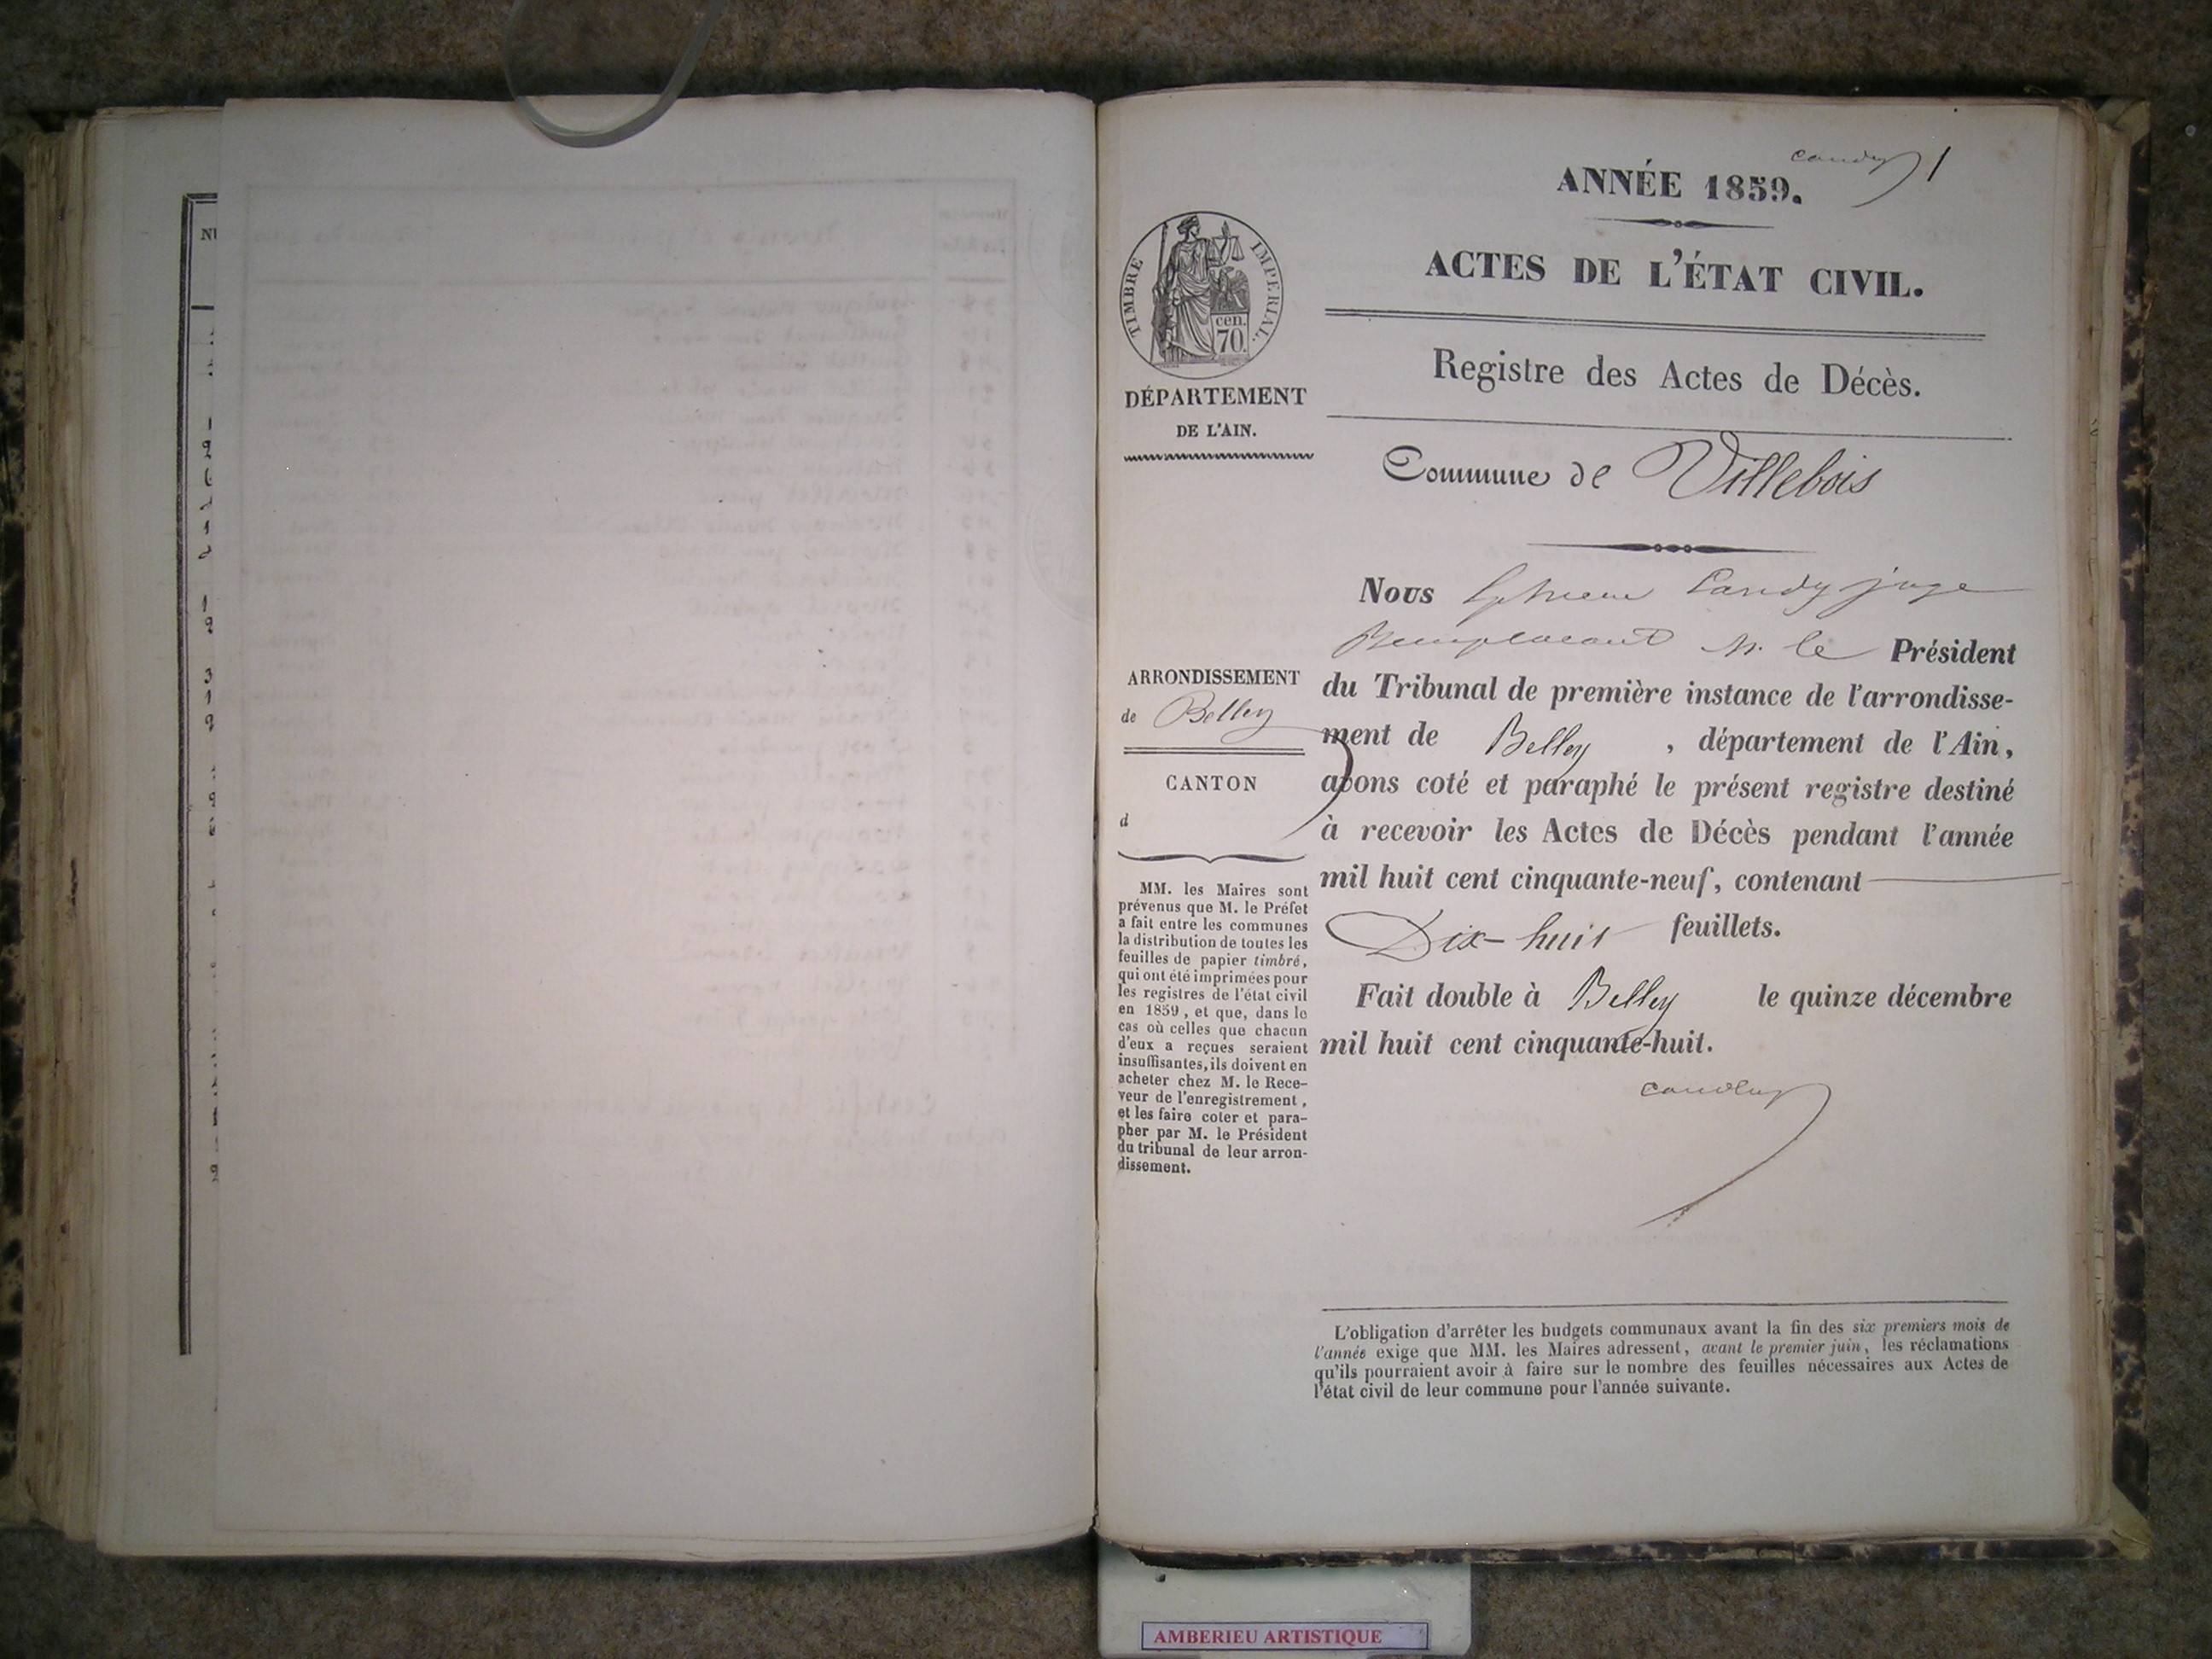 candy 1
ANNÉE 1859.
ACTES DE L'ÉTAT CIVIL.
Registre des Actes de Décès.
Commune de Villebois
TIMBRE IMPERIAL.
cen.
70.
DÉPARTEMENT
DE L'AIN.
ARRONDISSEMENT
de Belley
CANTON
d
MM. les Maires sont
prévenus que M. le Préfet
a fait entre les communes
la distribution de toutes les
feuilles de papier timbré,
qui ont été imprimées pour
les registres de l'état civil
en 1859, et que, dans le
cas où celles que chacun
d'eux a reçues seraient
insuffisantes, ils doivent en
acheter chez M. le Rece-
veur de l'enregistrement,
et les faire coter et para-
pher par M. le Président
du tribunal de leur arron-
dissement.
Nous Candy juge
Remplacant M. le Président
du Tribunal de première instance de l'arrondisse-
ment de Belley, département de l'Ain,
avons coté et paraphé le présent registre destiné
à recevoir les Actes de Décès pendant l'année
mil huit cent cinquante-neuf, contenant
Dix-huit feuillets.
Fait double à Belley le quinze décembre
mil huit cent cinquante-huit.
candy
L'obligation d'arrêter les budgets communaux avant la fin des six premiers mois de
l'année exige que MM. les Maires adressent, avant le premier juin, les réclamations
qu'ils pourraient avoir à faire sur le nombre des feuilles nécessaires aux Actes de
l'état civil de leur commune pour l'année suivante.
AMBERIEU ARTISTIQUE